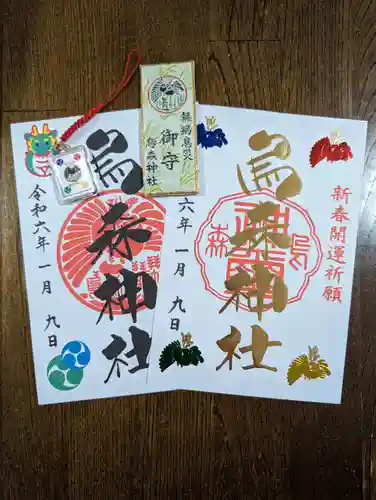 無病息災
御守
烏森神社
烏森神社
令和六年一月九日
新春開運祈願
烏森神社
六年一月九日
森
烏